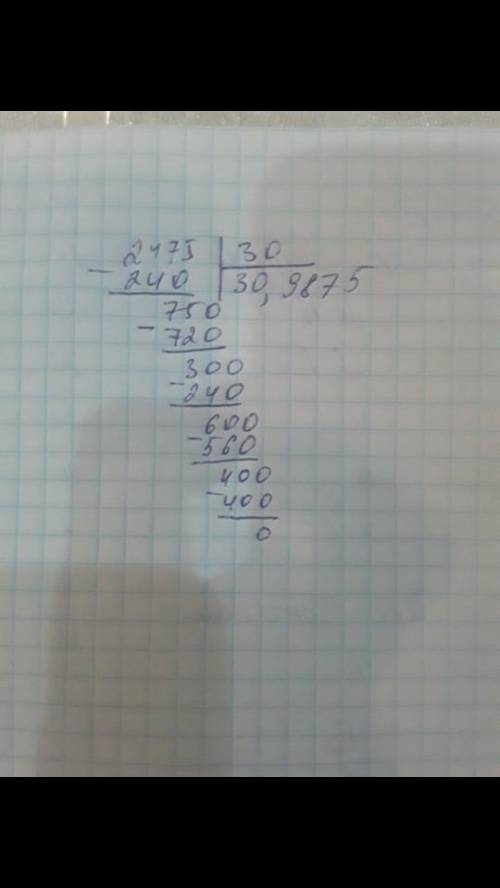 2475 30
- 240 30,9875
750
- 720
300
- 240
600
- 560
400
- 400
0